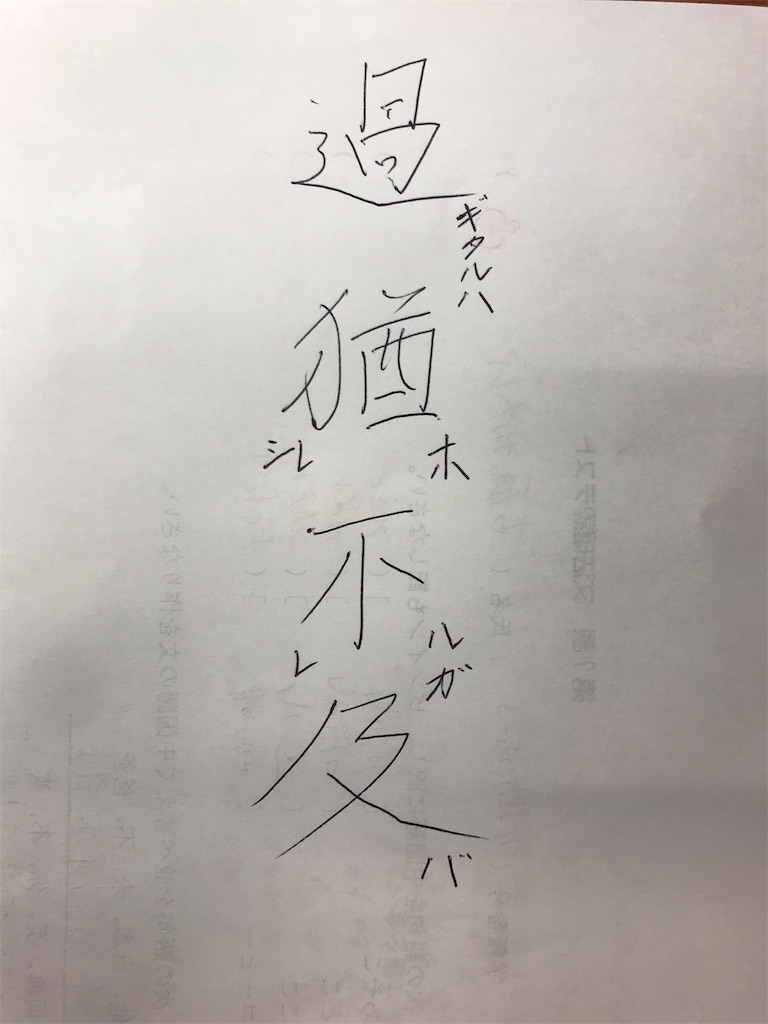 過ギタルハ猶ホシレ不ルガレ及バ